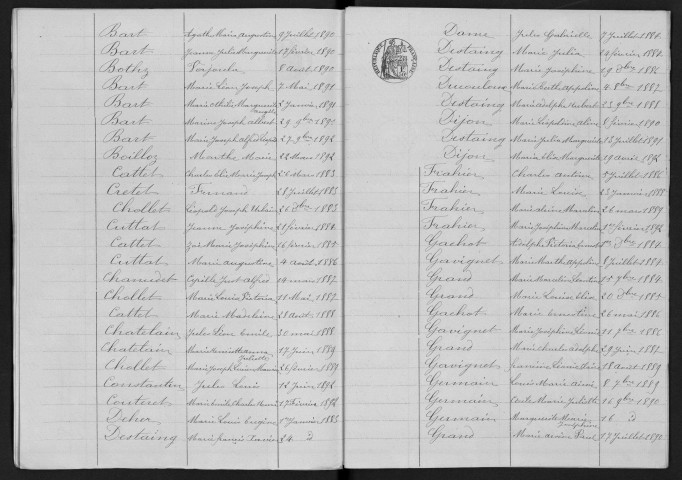 Bart Agathe Marie Augustine 9 Juillet 1890
Bart Jeanne Julie Marguerite 17 février 1890
Bothez 8 août 1890
Bart Marie Léon Joseph 7 Mai 1891
Bart Marie Mathilde Marguerite 2 Janvier 1891
Bart Marie Joseph Albert 29 9bre 1891
Bart Marie Joseph Alfred 27 9bre 1892
Boilloz Marthe Marie 22 Mars 1892
Cattet Charles Marie Joseph 26 Mars 1883
Cretet Fernand 21 Juillet 1883
Chollet Léopold Joseph 26 Xbre 1883
Cuttat Jeanne Joséphine 21 février 1884
Cattet Marie Joséphine 16 février 1884
Cuttat Marie Augustine 4 août 1886
Chamidet Cyrille Just Alfred 14 mars 1887
Chollet Marie Louise 11 Mai 1887
Cattet Marie Madeleine 21 août 1888
Chatelain Jules Léon Emile 30 mai 1888
Chatelain Marie Henriette Anna Juliette 17 Juin 1889
Chollet Marie Joseph Louis 26 février 1889
Constantin Jules Louis 12 Juin 1892
Couteret Marie Emile Charles Henri 17 février 1892
Deher Marie Louis Eugène 1er Janvier 1883
Destaing Marie François Xavier 24 d
Dame Jules Gabrielle 7 Juillet 1884
Destaing Marie Julia 24 février 1884
Destaing Marie Joséphine 19 Xbre 1886
Marie Edith Appoline 4 8bre 1887
Destaing Marie Adolphe Hubert 23 9bre 1888
Dijon Marie Léopoldine 6 février 1890
Destaing Marie Julia Marguerite 13 Juillet 1891
Dijon Marie Elia Marguerite 19 avril 1892
Frahier Charles Antoine Juillet 1886
Frahier Marie Louise 23 Janvier 1888
Frahier Marie 26 mars 1889
Frahier Marie Joséphine 1er février 1892
Gachot Adolphe 1884
Gavignet Marie Marthe Appoline 8 Juillet 1884
Grand Marie 15 9bre 1884
Grand Marie Louise Elise 20 Xbre 1884
Gachot Marie Ernestine 26 mai 1886
Gavignet Marie Joséphine 11 7bre 1886
Grand Marie Charles Adolphe 29 Juin 1887
Gavignet François 18 août 1889
Germain Louis Marie Aimé 8 7bre 1889
Germain Cécile Marie Juliette 16 9bre 1890
Germain Marguerite Marie Joséphine 16 d
Grand Marie 17 Juillet 1892
RÉPUBLIQUE FRANÇAISE